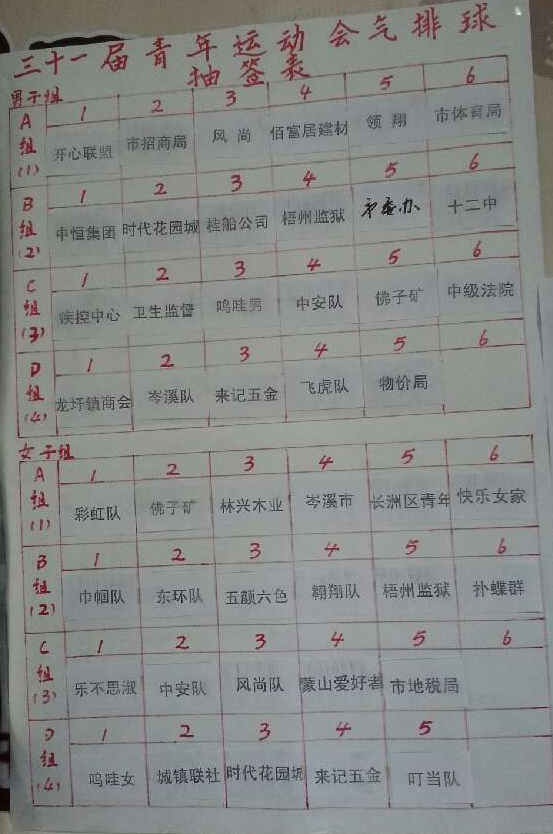 三十一届青年运动会气排球
抽签表
男子组
A组(1) 1 2 3 4 5 6
开心联盟 市招商局 风尚 佰富居建材 领翔 市体育局
B组(2) 1 2 3 4 5 6
中恒集团 时代花园城 桂船公司 梧州监狱 市委办 十二中
C组(3) 1 2 3 4 5 6
疾控中心 卫生监督 呜哇男 中安队 佛子矿 中级法院
D组(4) 1 2 3 4 5 6
龙圩镇商会 岑溪队 来记五金 飞虎队 物价局
女子组
A组(1) 1 2 3 4 5 6
彩虹队 佛子矿 林兴木业 岑溪市 长洲区青年 快乐女家
B组(2) 1 2 3 4 5 6
巾帼队 东环队 五颜六色 翱翔队 梧州监狱 扑蝶群
C组(3) 1 2 3 4 5 6
乐不思淑 中安队 风尚队 蒙山爱好者 市地税局
D组(4) 1 2 3 4 5
呜哇女 城镇联社 时代花园城 来记五金 叮当队